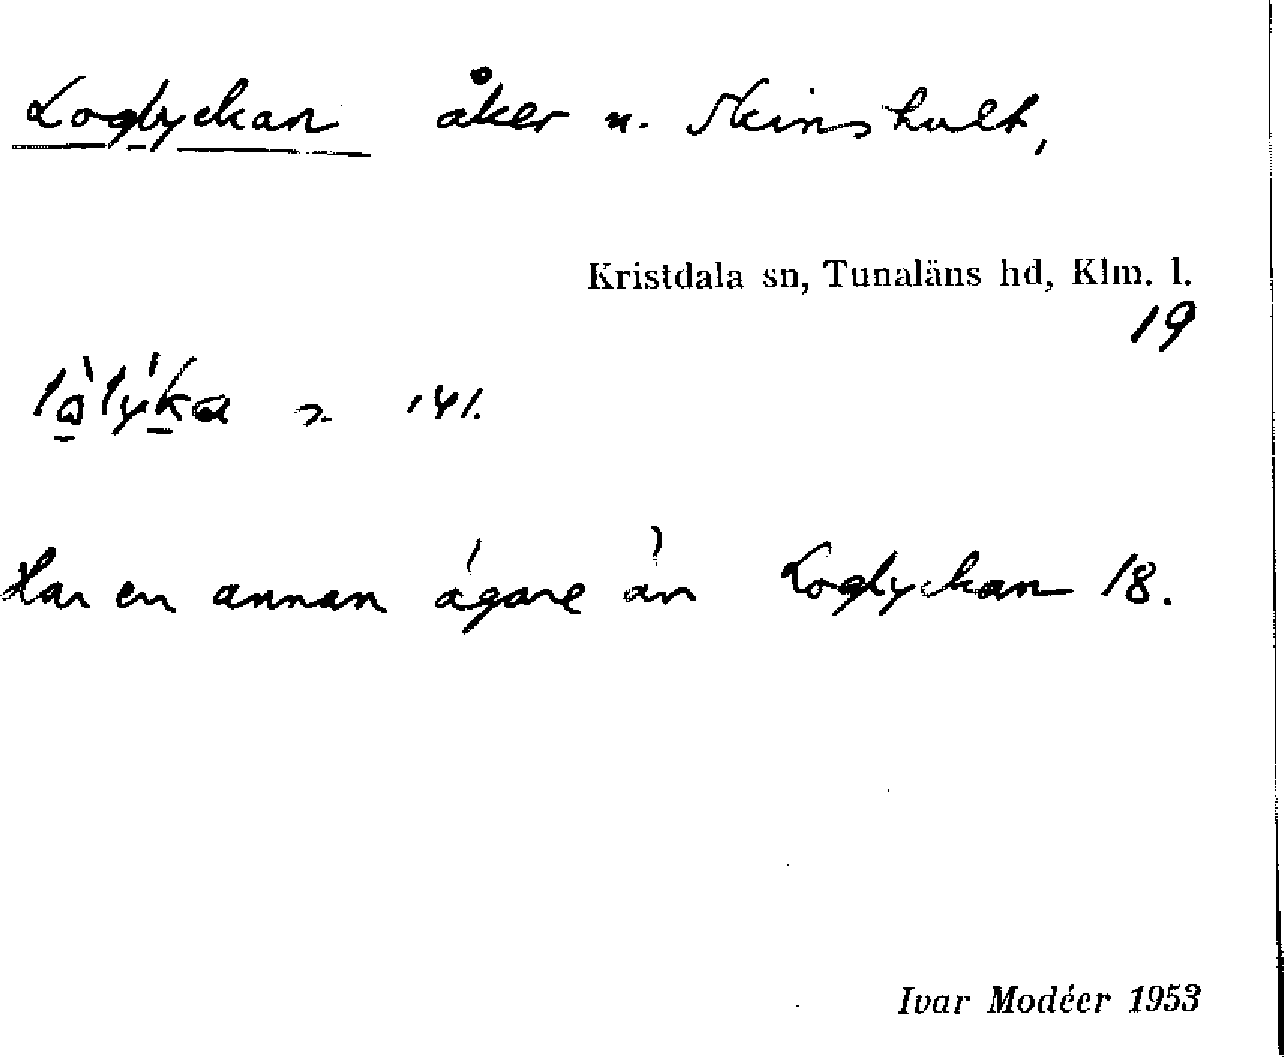 Loglyckan åker n. Skinshult,
Kristdala sn, Tunaläns hd, Klm. l.
19
Har en annan ägare än Loglyckan 18.
Ivar Modéer 1953